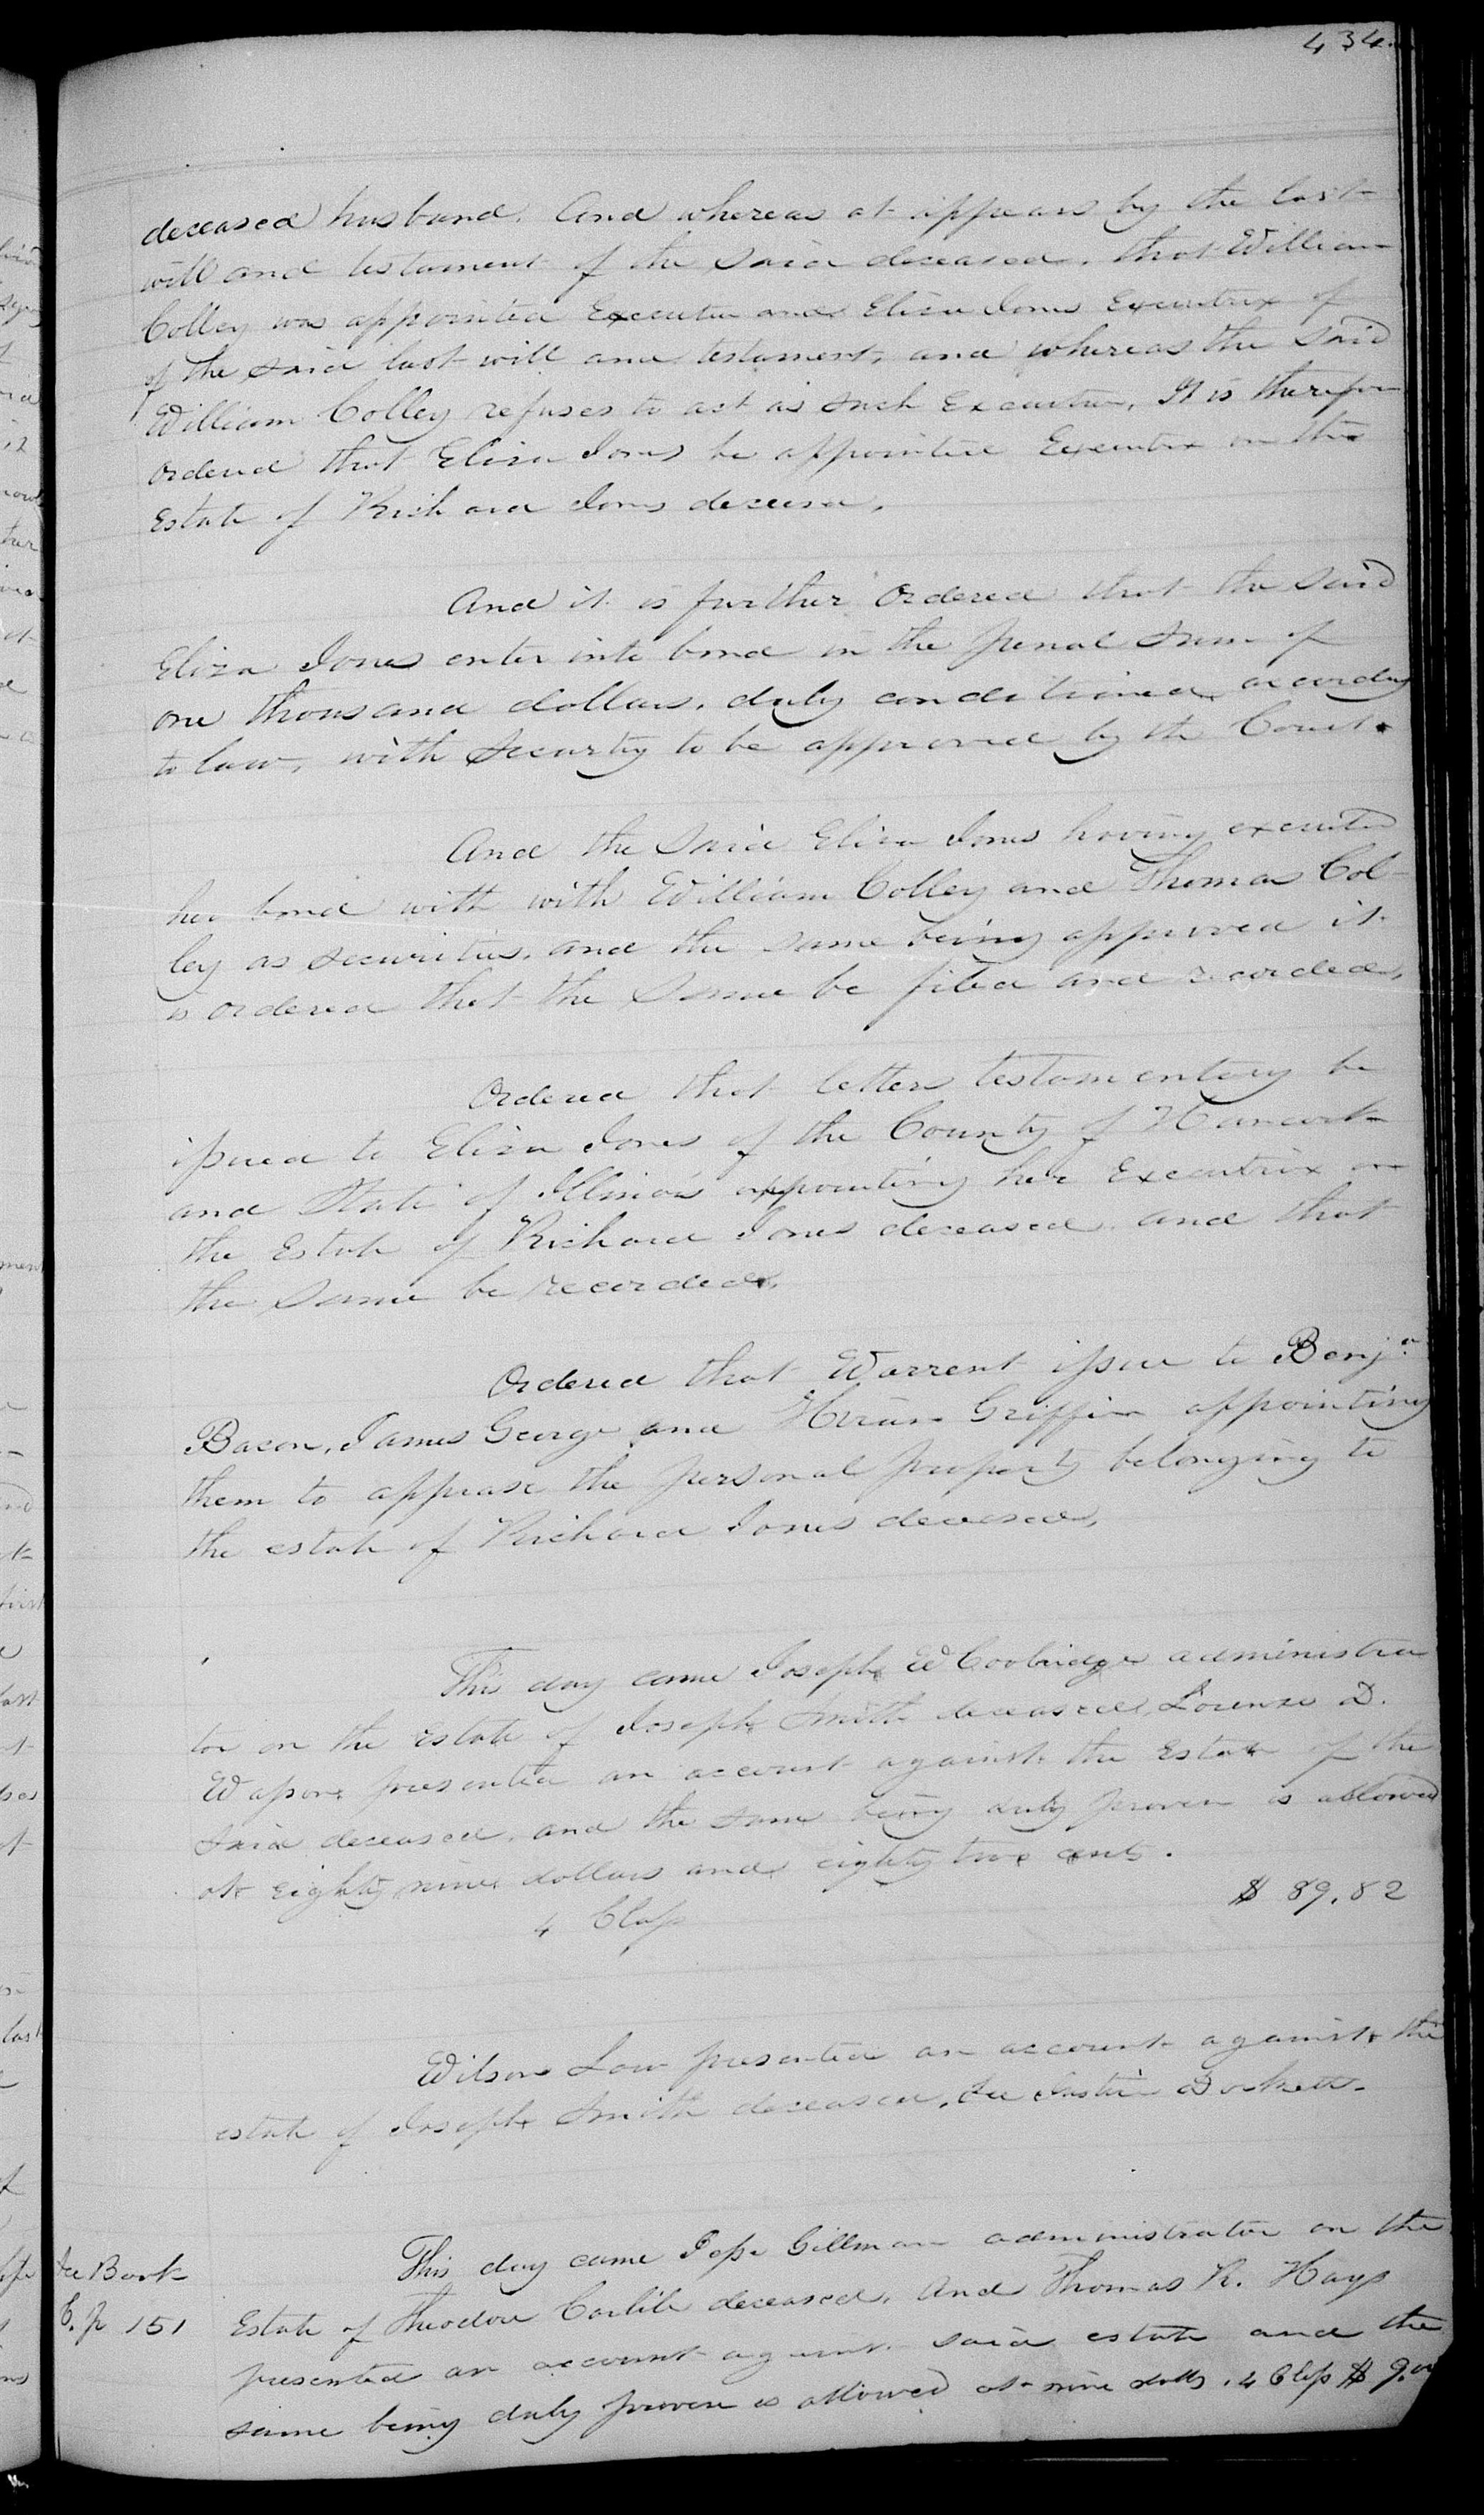 434
deceased husband. And whereas it appears by the last
will and testament of the said deceased, that William
Colley was appointed Executor and Eliza Jones Executrix of
of the said last will and testament, and whereas the said
William Colley refuses to act as such Executor, It is therefore
ordered that Eliza Jones be appointed Executrix on the
Estate of Richard Jones deceased.
And it is further ordered that the said
Eliza Jones enter into bond in the penal sum of
one thousand dollars, duly conditioned according
to law, with security to be approved by the Court.
And the said Eliza Jones having executed
her bond with with William Colley and Thomas Col-
ley as securities, and the same being approved it
is ordered that the same be filed and recorded,
Ordered that letters testamentary be
issued to Eliza Jones of the County of Hancock
and State of Illinois appointing her Executrix on
the Estate of Richard Jones deceased and that
the same be recorded.
Ordered that Warrent issue to Benjn
Bacon, James George and Hiram Griffin appointing
them to apprase the personal property belonging to
the estate of Richard Jones deceased,
This day came Joseph W Coolridge administra
tor on the estate of Joseph Smith deceased, Lorenzo D.
Wasson presented an account against the Estate of the
said deceased, and the same being duly proven is allowed
at Eighty nine dollars and eighty two cents.
4 Class $ 89.82
Wilson Law presented an account against the
estate of Joseph Smith deceased, See Justice Dockett.
This day came Jesse Gillman administrator on the
See Book
Estate of Theodore Carlile deceased, And Thomas R. Hays
C. p 151
presented an account against said estate and the
same being duly proven is allowed at nine dolls. 4 Class $ 9.00